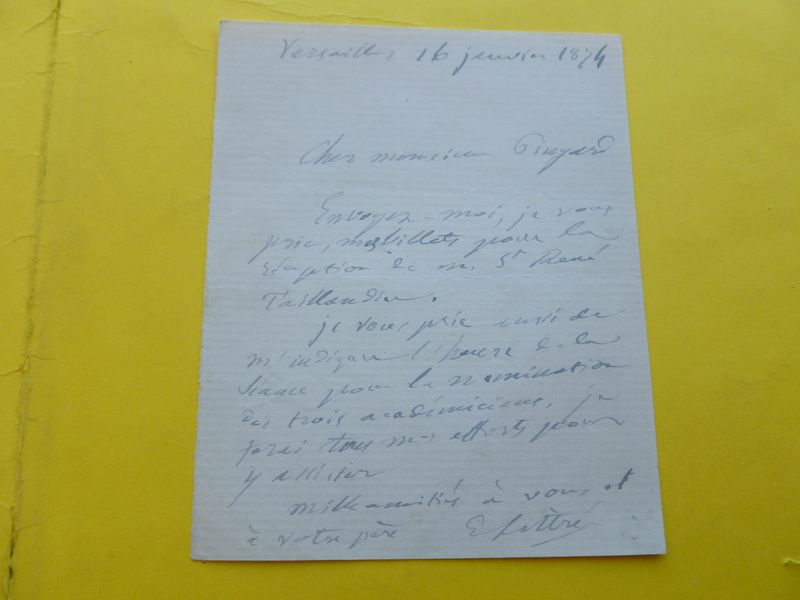 Versailles 16 janvier 1874
Cher monsieur Pingard
Envoyez-moi, je vous
prie, mes billets pour la
réception de m. St René
Taillandier.
je vous prie aussi de
m'indiquer l'heure de la
séance pour la nomination
des trois académiciens. je
ferai tous mes efforts pour
y assister
mille amitiés à vous et
à votre père E Littré